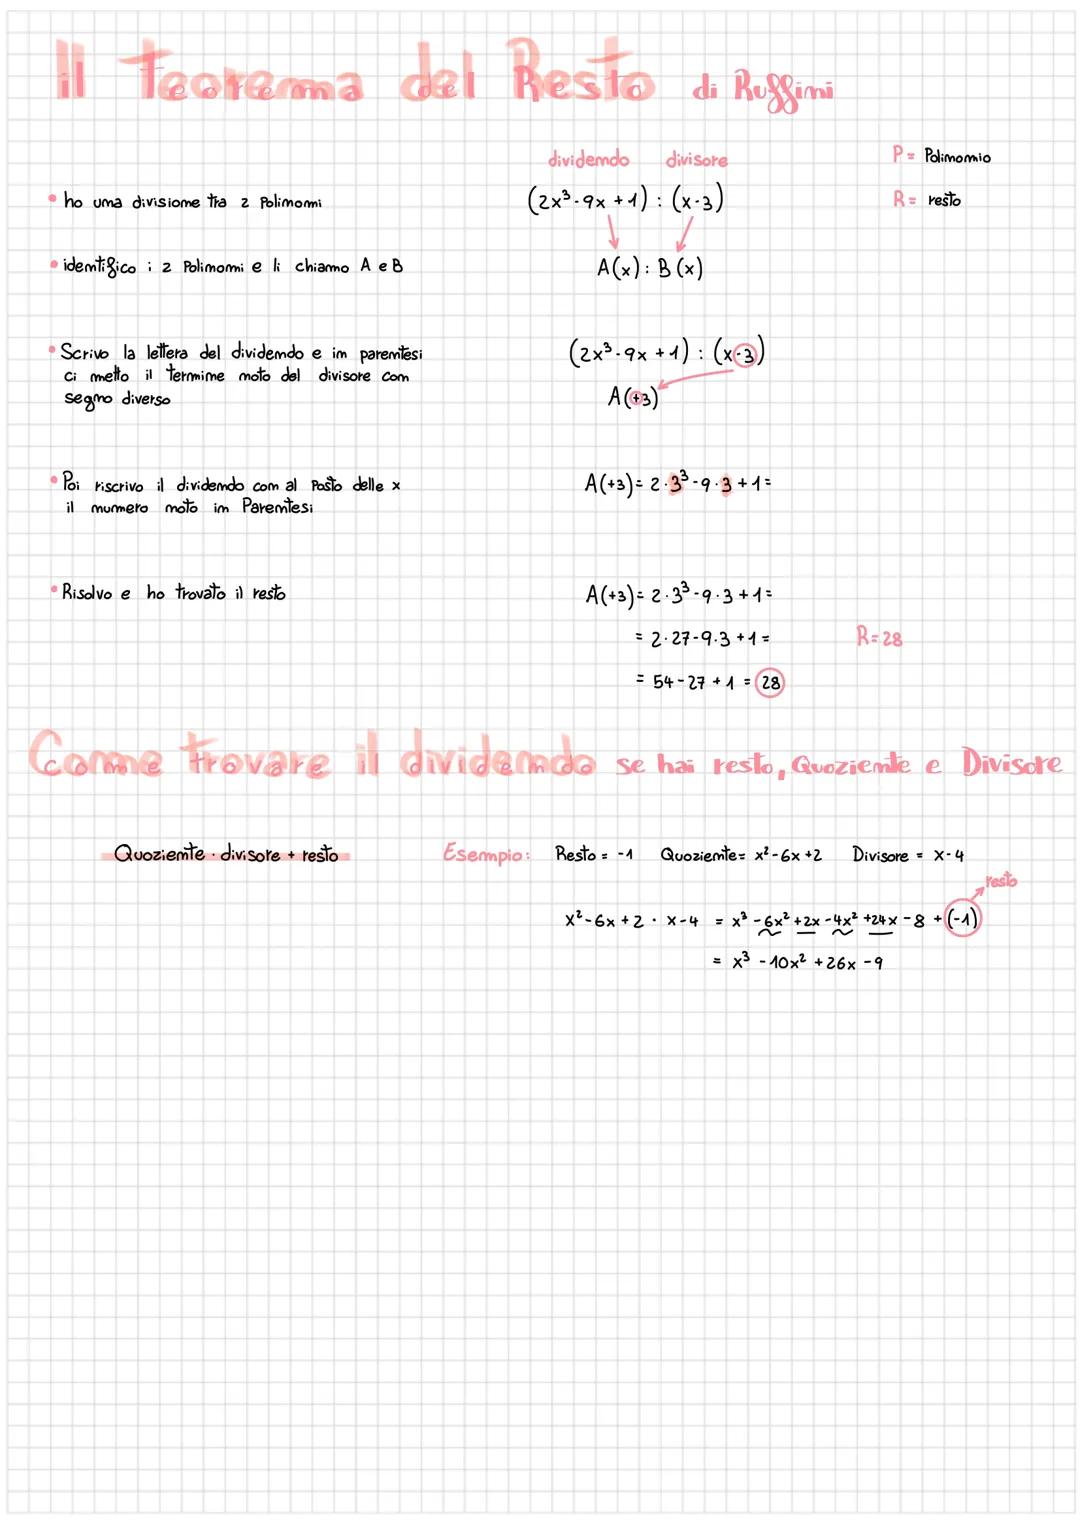 Il Teorema del Resto di Ruffini
dividendo divisore
P = Polinomio
• ho una divisione tra 2 Polinomi
(2x³-9x+1) : (x-3)
R = resto
• identifico i 2 Polinomi e li chiamo A e B
A(x) : B(x)
• Scrivo la lettera del dividendo e in parentesi
ci metto il termine noto del divisore con
segno diverso
(2x³-9x+1) : (x-3)
A(+3)
• Poi riscrivo il dividendo con al Posto delle x
il numero noto in Parentesi
A(+3)= 2·3³-9·3+1=
• Risolvo e ho trovato il resto
A(+3)= 2·3³-9·3+1=
= 2·27-9·3+1=
R=28
= 54-27+1=28
Come trovare il dividendo se hai resto, Quoziente e Divisore
Quoziente · divisore + resto
Esempio: Resto = -1 Quoziente= x²-6x+2 Divisore = x-4
resto
x²-6x+2 · x-4 = x³-6x²+2x-4x²+24x-8+(-1)
= x³-10x²+26x-9